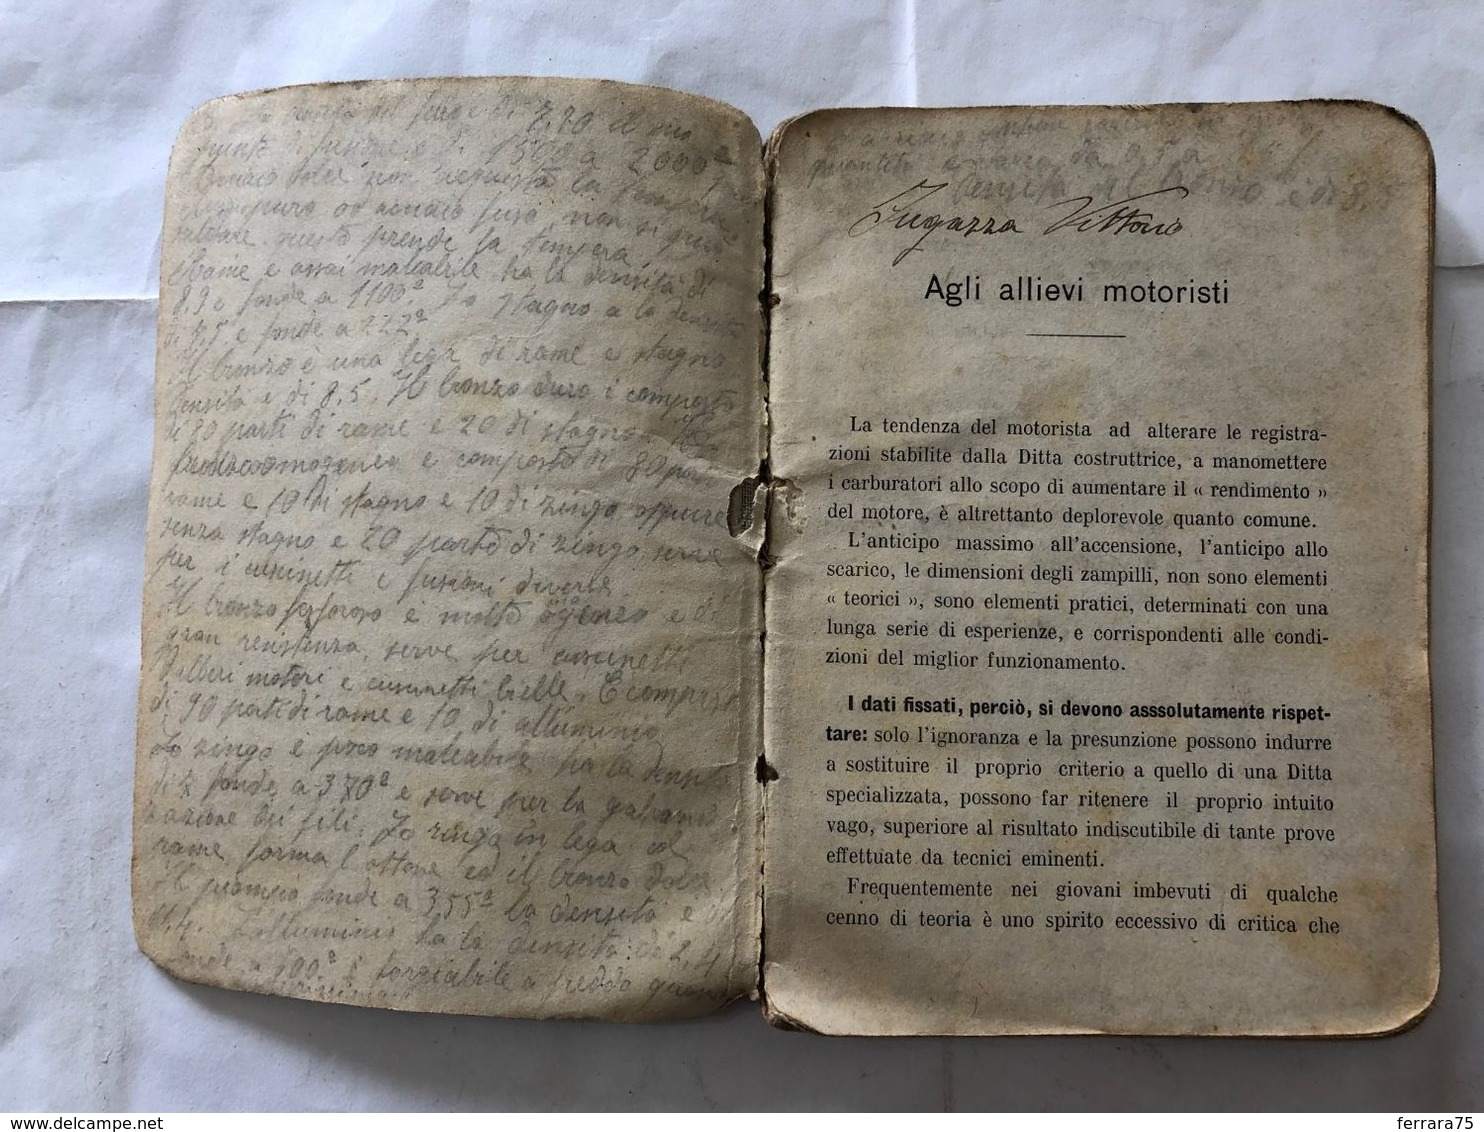 densità del ferro è di 7,20 il suo
punto di fusione è di 1500 a 2000ª
non acquista la tempera
puro od acciaio fuso, non si può
saldare questo prende la tempera
Rame e assai maleabile ha la densità di
8.9 e fonde a 1100ª. Lo stagno a la densità
di 7,5 e fonde a 222ª
Il bronzo è una lega di rame e stagno
densità e di 8,5. Il bronzo duro i composto
di 80 parti di rame e 20 di stagno. Il
omogeneo e composto di 80 parti
rame e 10 di stagno e 10 di zingo oppure
senza stagno e 20 parti di zingo, serve
per i cuscinetti e fusioni diverse
Il bronzo fosforoso e molto e di
gran resistenza, serve per cuscinetti
d'alberi motori e cuscinetti bielle. E composto
di 90 parti di rame e 10 di alluminio
Lo zingo è poco maleabile ha la densità
di 7 fonde a 370ª e serve per la galvaniz
zazione dei fili. Lo zingo in lega col
rame forma l'ottone ed il bronzo dolce
Il piombo fonde a 355ª la densità è
11,4. L'alluminio ha la densità di 2,4
fonde a 700ª è forgiabile a freddo
quantità varia da 0,5 a
densità del bronzo è di 8,5
Fugazza Vittorio
Agli allievi motoristi
La tendenza del motorista ad alterare le registra-
zioni stabilite dalla Ditta costruttrice, a manomettere
i carburatori allo scopo di aumentare il « rendimento »
del motore, è altrettanto deplorevole quanto comune.
L'anticipo massimo all'accensione, l'anticipo allo
scarico, le dimensioni degli zampilli, non sono elementi
« teorici », sono elementi pratici, determinati con una
lunga serie di esperienze, e corrispondenti alle condi-
zioni del miglior funzionamento.
I dati fissati, perciò, si devono asssolutamente rispet-
tare: solo l'ignoranza e la presunzione possono indurre
a sostituire il proprio criterio a quello di una Ditta
specializzata, possono far ritenere il proprio intuito
vago, superiore al risultato indiscutibile di tante prove
effettuate da tecnici eminenti.
Frequentemente nei giovani imbevuti di qualche
cenno di teoria è uno spirito eccessivo di critica che
www.delcampe.net
ferrara75